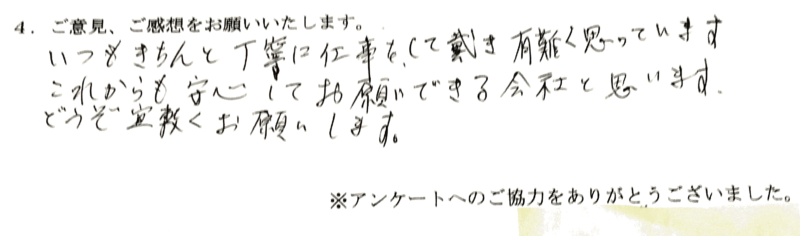 4. ご意見、ご感想をお願いいたします。
いつもきちんと丁寧に仕事をして戴き有難く思っています
これからも安心してお願いできる会社と思います.
どうぞ宜敷くお願いします。
※アンケートへのご協力をありがとうございました。